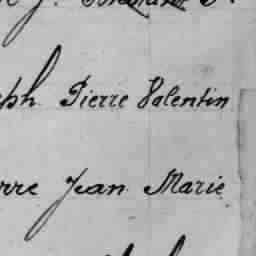 ph Pierre Valentin
rre Jean Marie